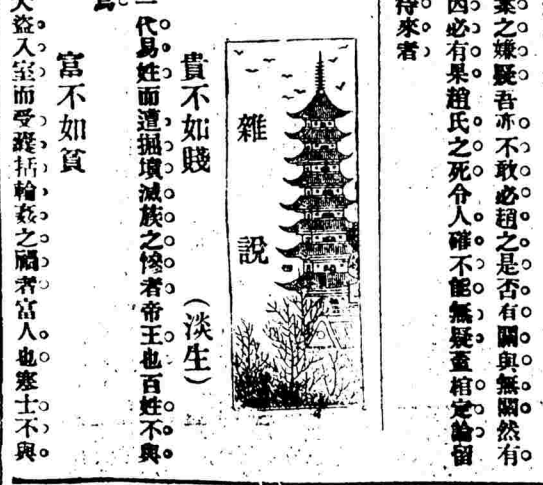 案之嫌疑吾亦不敢必趙之是否有關與無關然有
因必有果趙氏之死令人確不能無疑蓋棺定論留
待來者
雜說
貴不如賤
(淡生)
一代易姓而遭掘墳滅族之慘者帝王也百姓不與
焉
富不如貧
大盜入室而受 輪姦之禍者富人也寒士不與